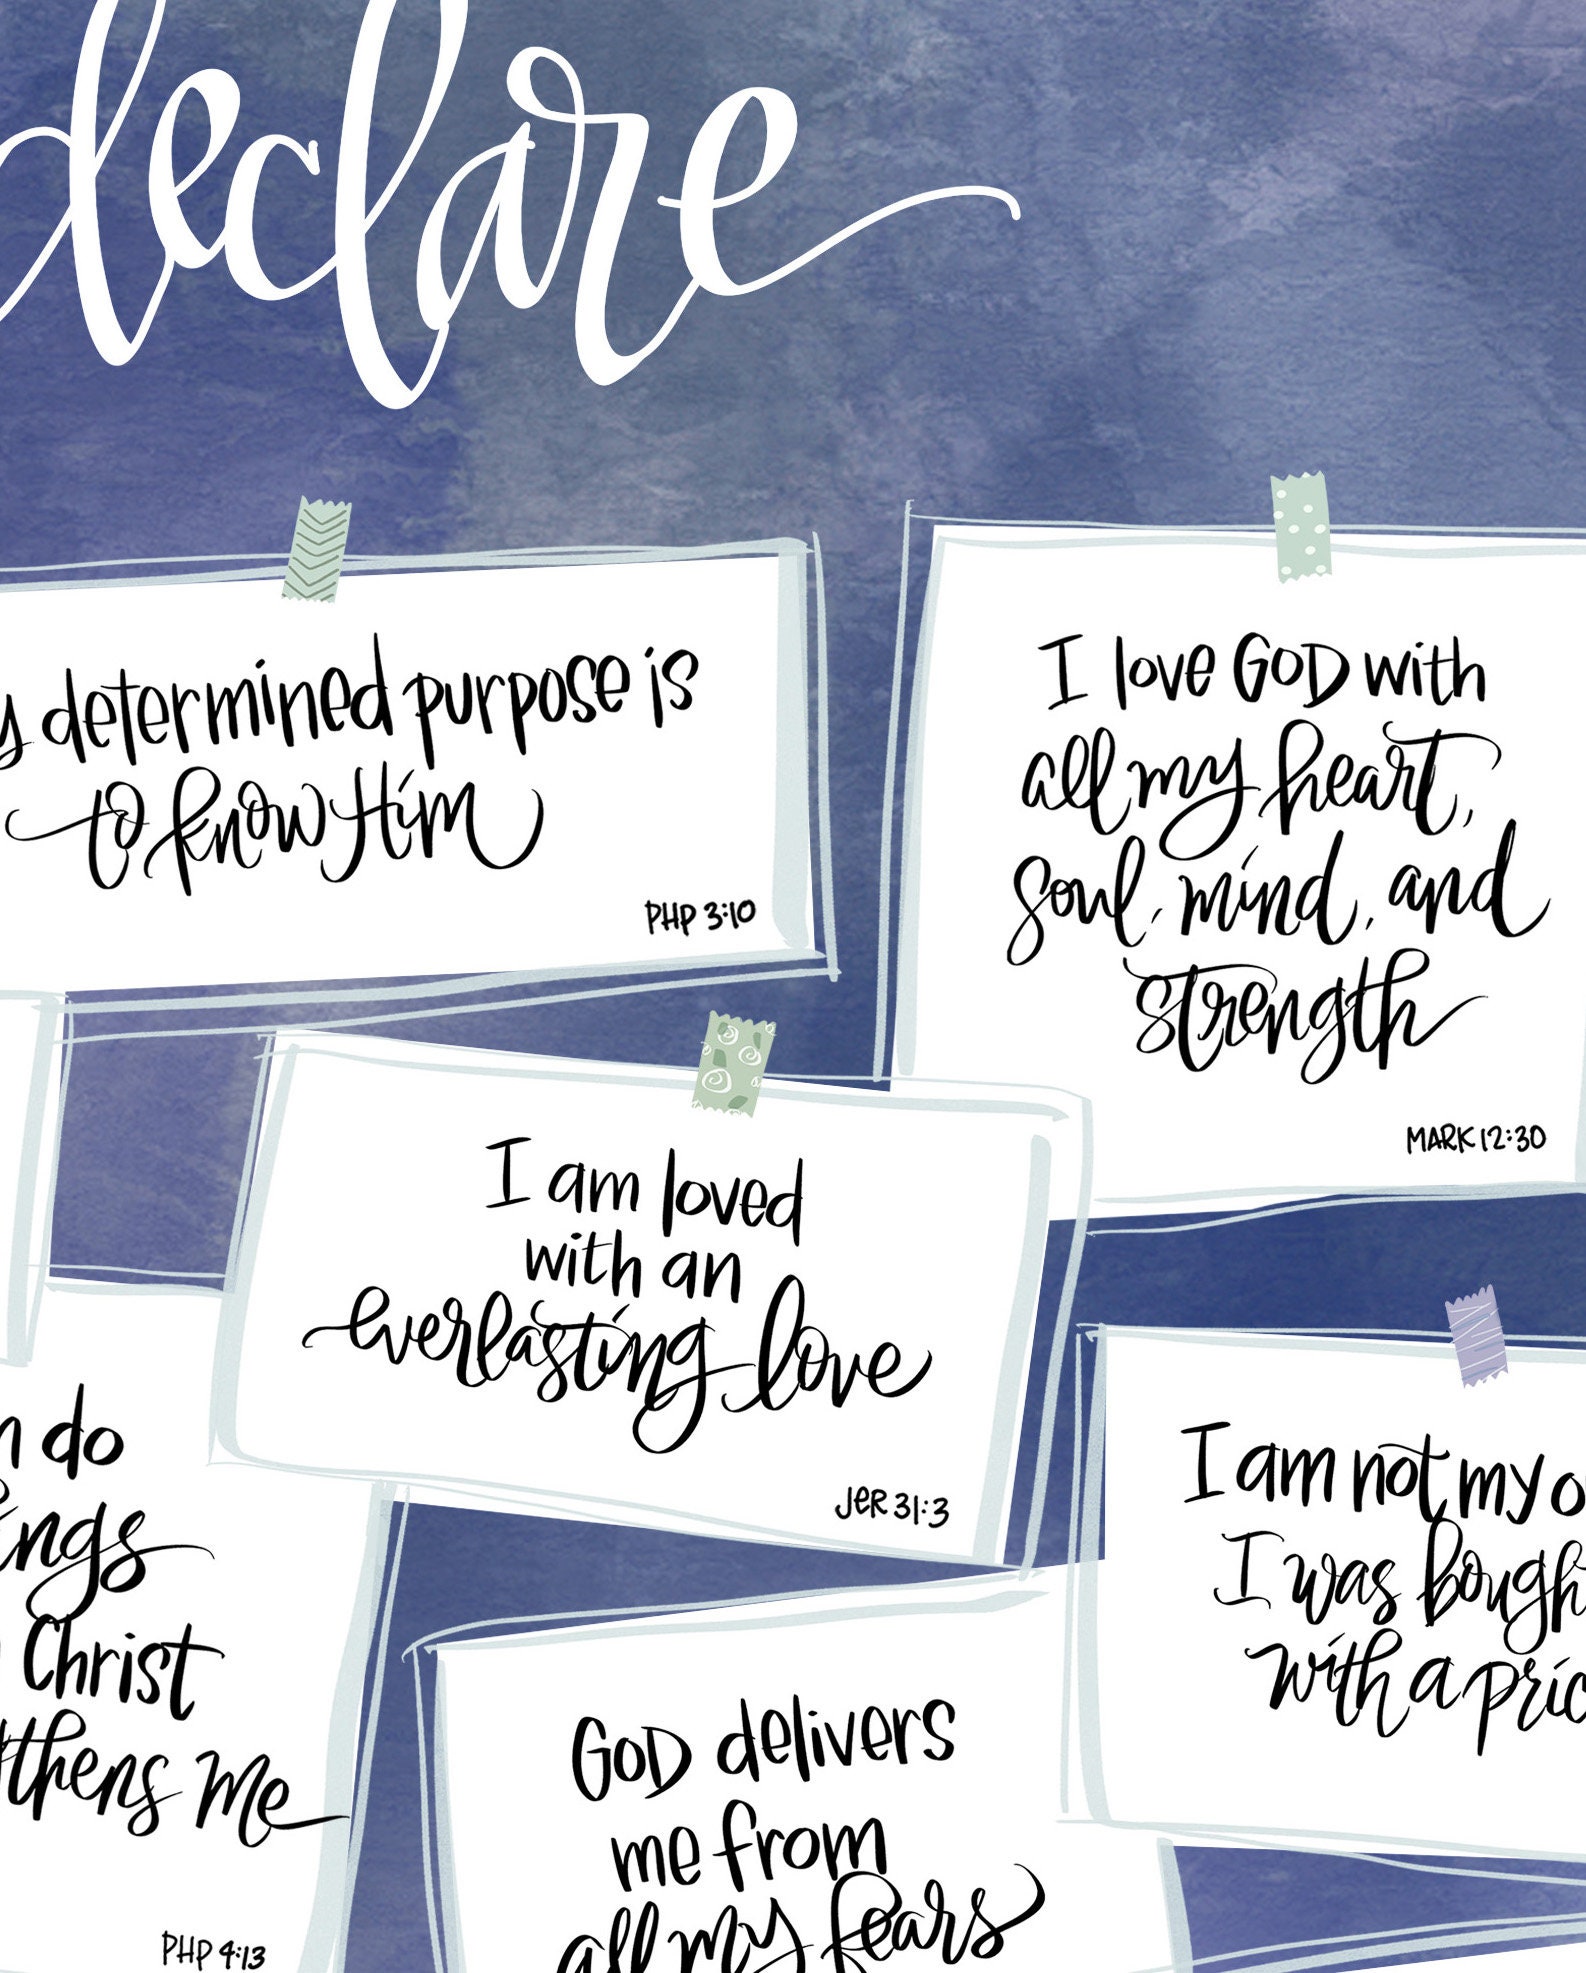 declare
determined purpose is
to know Him
PHP 3:10
I love GOD with
all my heart,
soul, mind, and
strength
MARK 12:30
I am loved
with an
everlasting love
JER 31:3
do
Christ
me
PHP 4:13
I am not my
I was
with a
GOD delivers
me from
all my fears